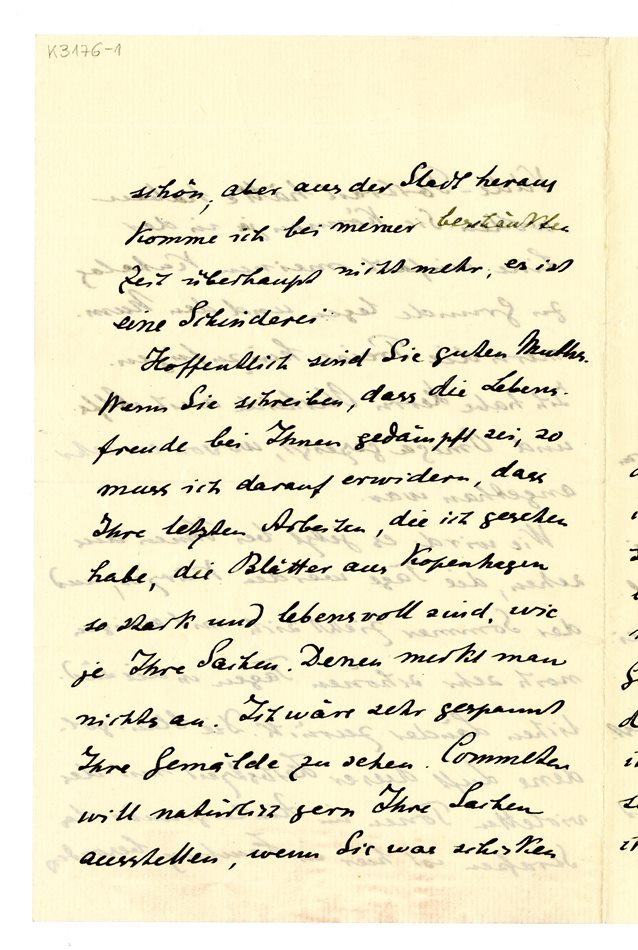 K3176-1
schön, aber aus der Stadt heraus
komme ich bei meiner beschränkten
Zeit überhaupt nicht mehr, es ist
eine Schinderei.
Hoffentlich sind Sie guten Muthes.
Wenn Sie schreiben, dass die Lebens-
freude bei Ihnen gedämpft sei, so
muss ich darauf erwidern, dass
Ihre letzten Arbeiten, die ich gesehen
habe, die Blätter aus Kopenhagen
so stark und lebensvoll sind, wie
je Ihre Sachen. Denen merkt man
nichts an. Ich wäre sehr gespannt
Ihre Gemälde zu sehen. Commeter
will natürlich gern Ihre Sachen
ausstellen, wenn Sie was schicken